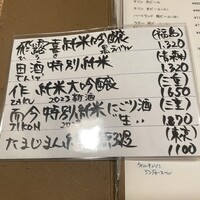 飛露喜 純米吟醸 (福島)
ひろき 黒ラベル 1,320
田酒 特別純米 (青森)
でんしゅ 1320
作 純米大吟醸 (三重)
ZAKU 2023新酒 1650
而今 特別純米 にごり酒 (三重)
JIKON 生 1870
たまじまん (東京)
1100